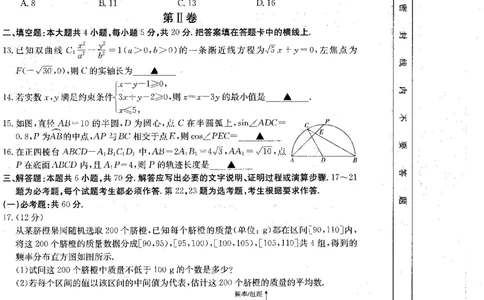 A. 8 B. 11 C. 13 D. 16
第Ⅱ卷
二、填空题:本大题共4小题,每小题5分,共20分.把答案填在答题卡中的横线上.
13. 已知双曲线 C: x²/a² - y²/b² = 1(a>0,b>0)的一条渐近线方程为√5 x+y=0,左焦点为
F(-√30,0),则C的实轴长为 ▲ .
14. 若实数x,y满足约束条件 { x-y-1≥0, 3x+y-2≥0, x≤5, 则z=x-3y的最小值是 ▲ .
15. 如图,直径AB=10的半圆,D为圆心,点C在半圆弧上,sin∠ADC=
0.8,P为AB的中点,AP与BC相交于点E,则cos∠PEC= ▲ .
C P E A D B
16. 在正四棱台ABCD-A₁B₁C₁D₁中,AB=2A₁B₁=4√3,AA₁=√10,点
P在底面ABCD内,且A₁P=4,则P的轨迹长度是 ▲ .
三、解答题:本题共6小题,共70分.解答应写出必要的文字说明、证明过程或演算步骤.17~21
题为必考题,每个试题考生都必须作答.第22,23题为选考题,考生根据要求作答.
(一)必考题:共60分.
17.(12分)
从某脐橙果园随机选取200个脐橙,已知每个脐橙的质量(单位:g)都在区间[90,110]内,
将这200个脐橙的质量数据分成[90,95),[95,100),[100,105),[105,110]共4组,得到的
频率分布直方图如图所示.
(1)试问这200个脐橙中质量不低于100 g的个数是多少?
(2)若每个区间的值以该区间的中间值为代表,估计这200个脐橙的质量的平均数.
频率/组距
密
封
线
内
不
要
答
题